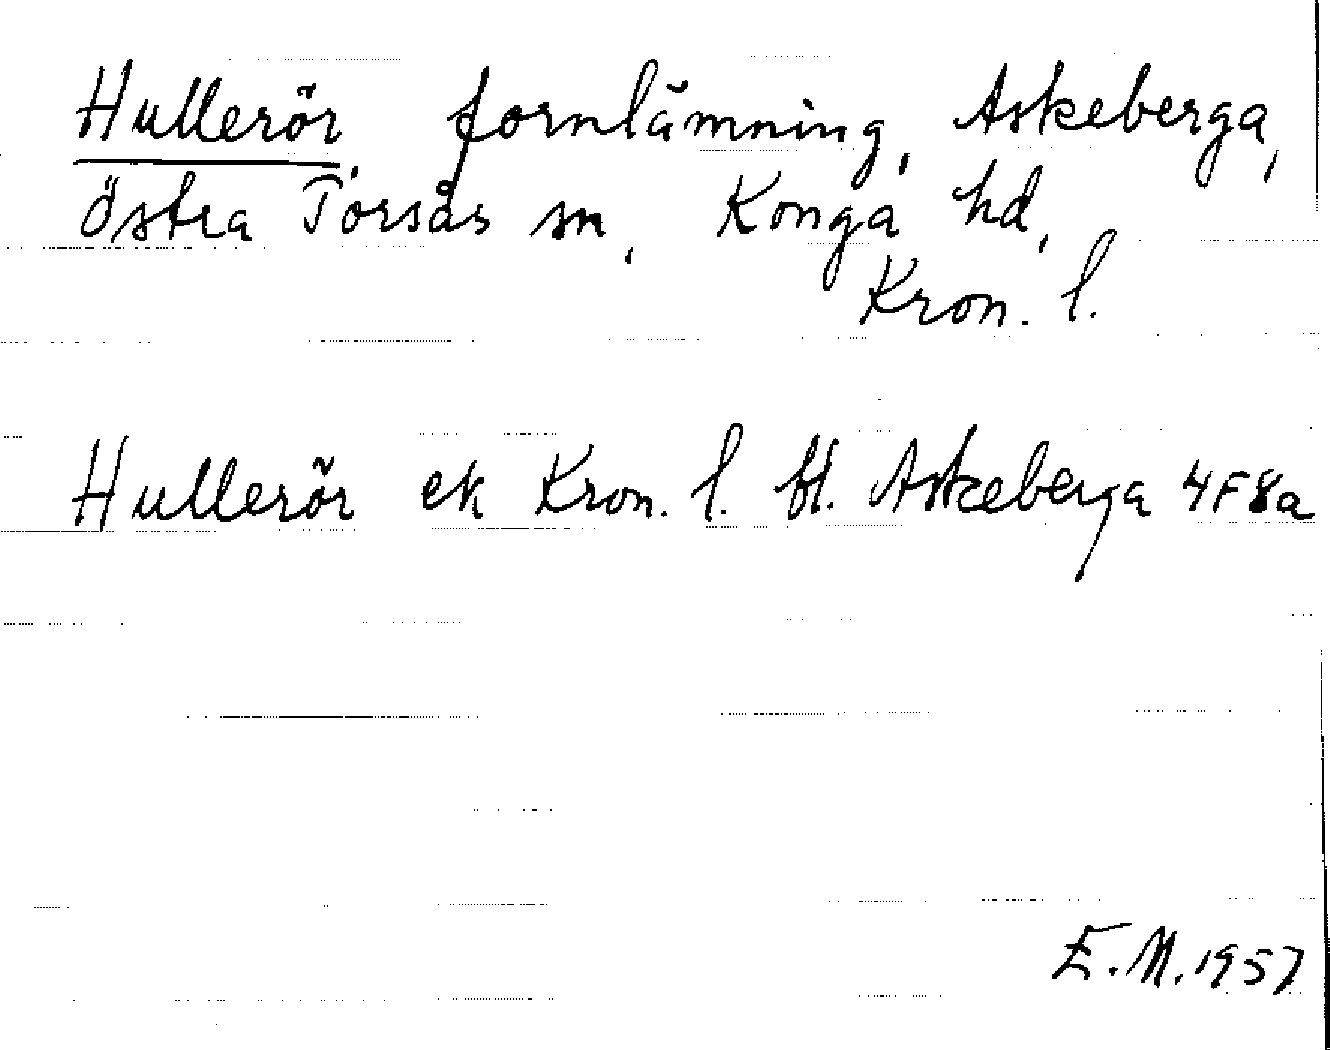 Hullerör, fornlämning, Askeberga,
Östra Torsås sn, Konga hd,
Kron. l.
Hullerör ek Kron. l. bl. Askeberga 4F8a
E.M. 1957